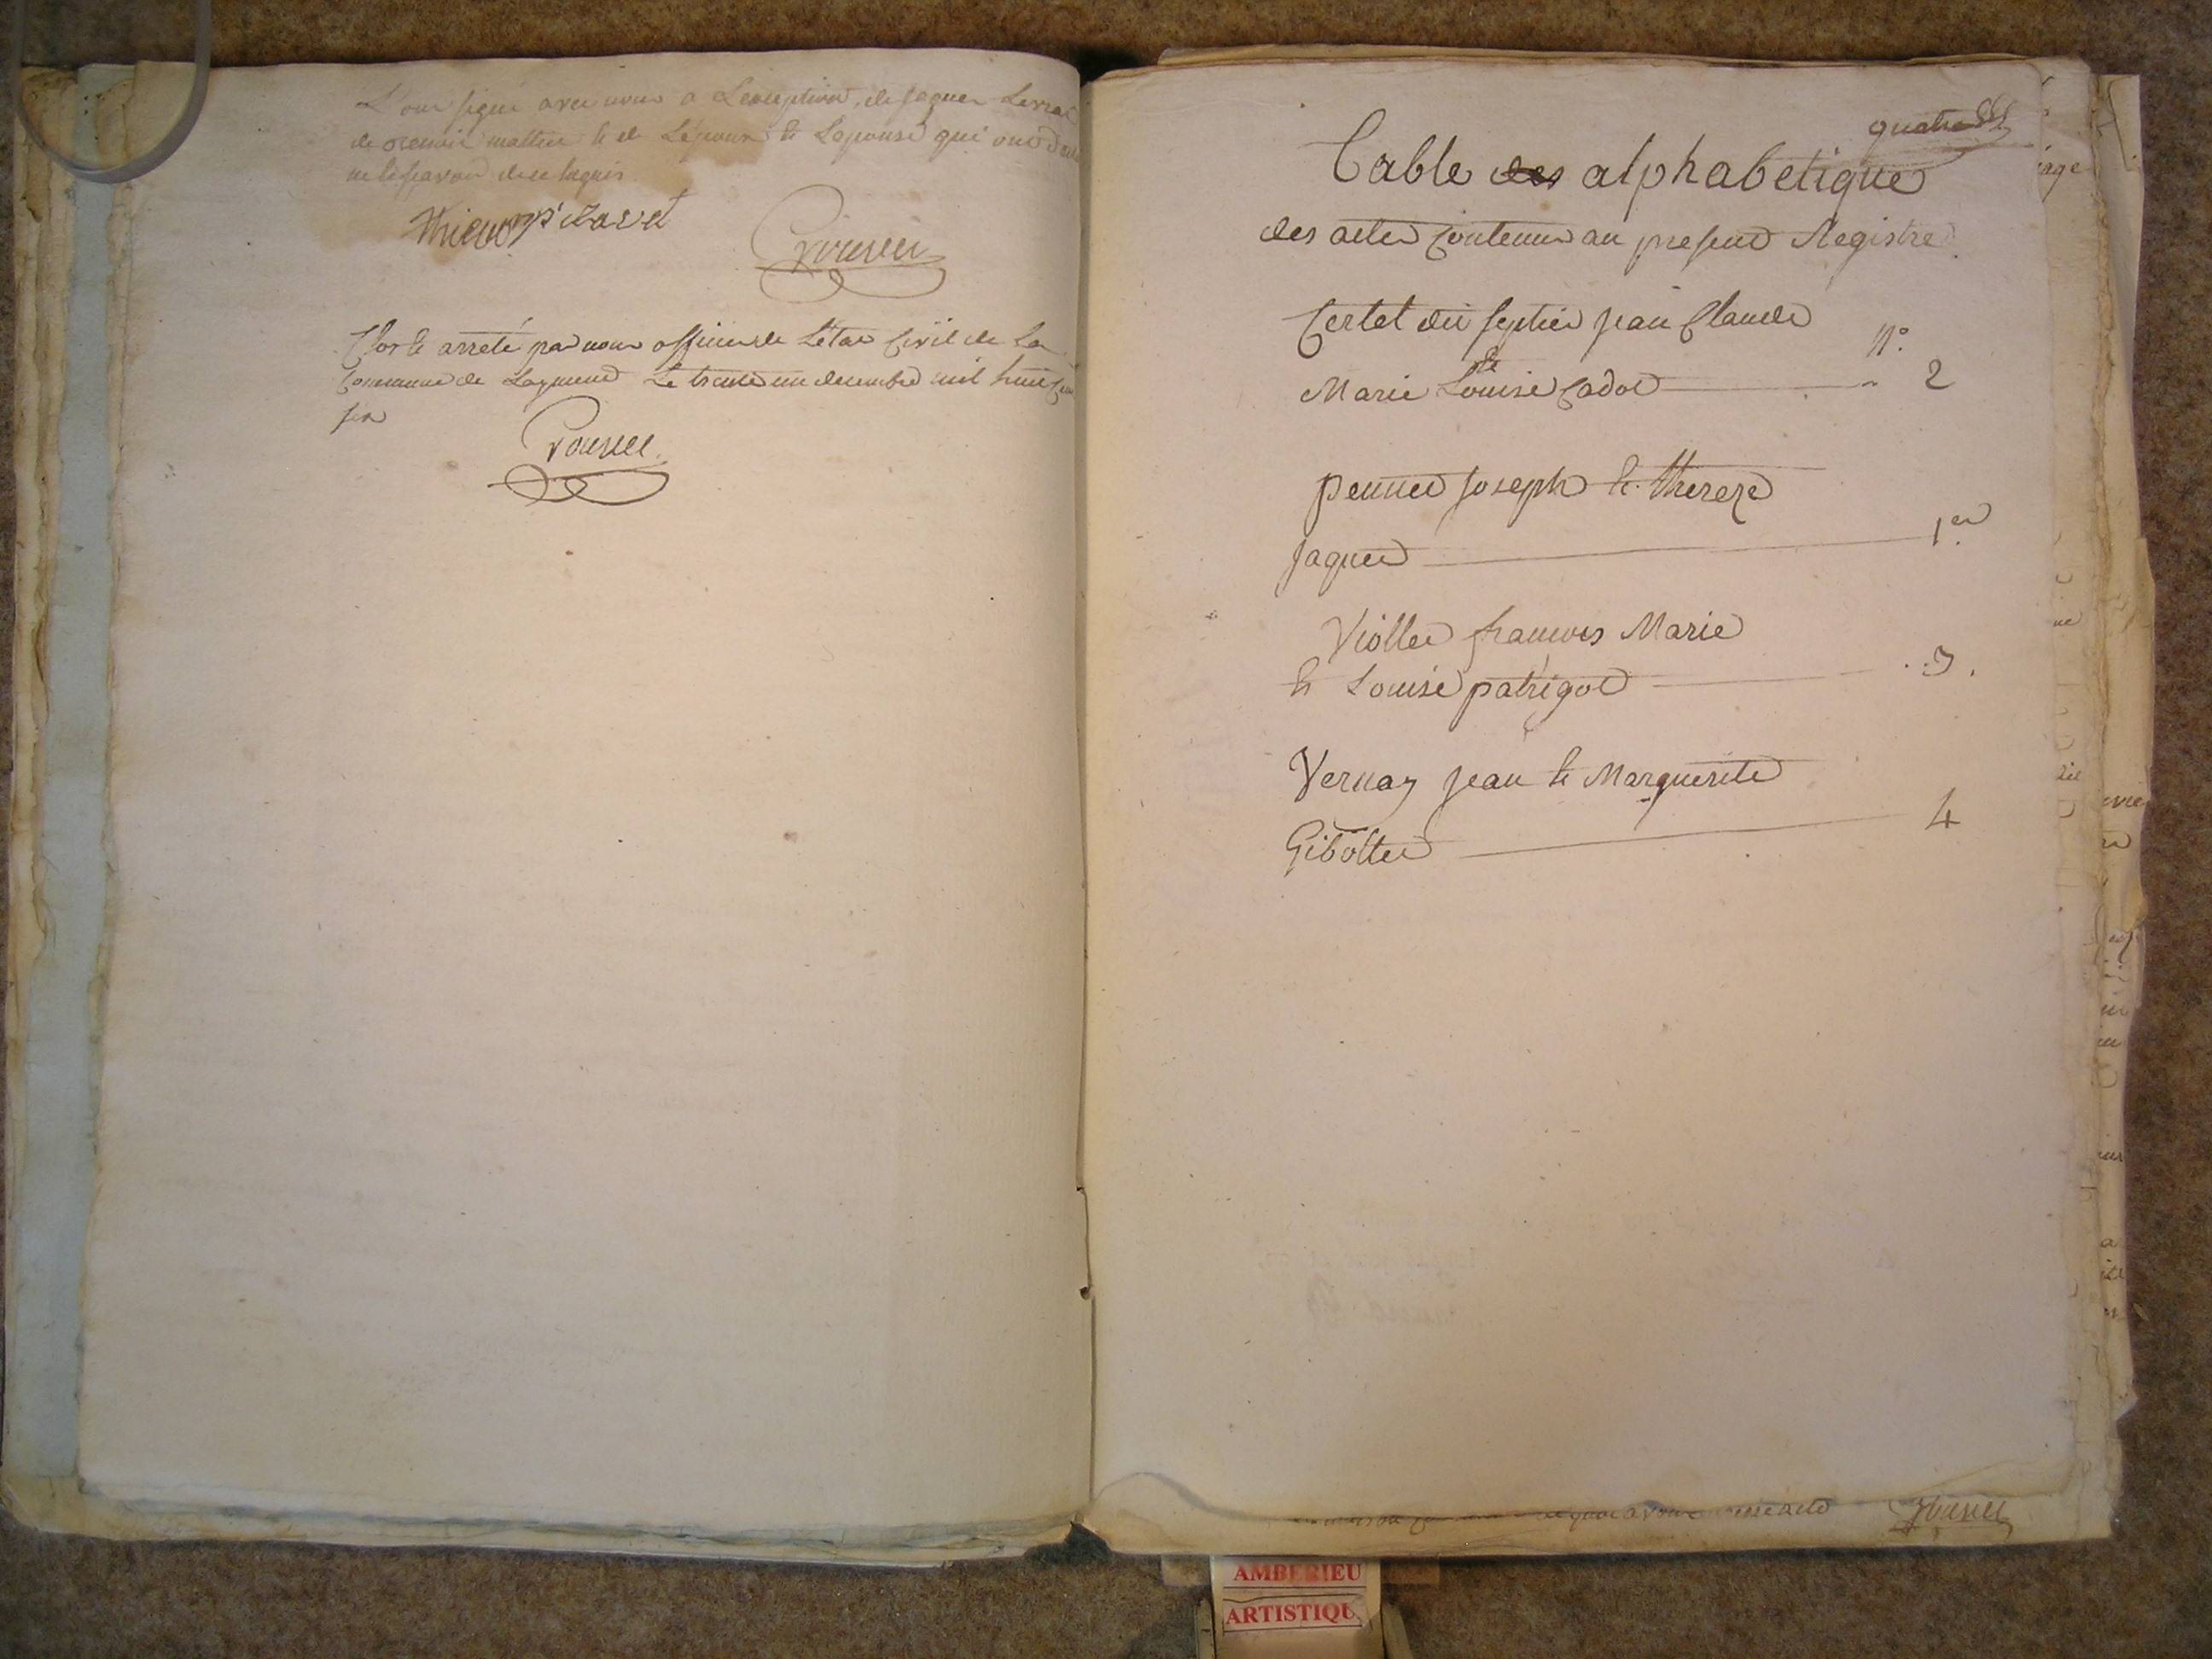 L'ont signé avec nous a L'exception, de Jaques
de et de L'epoux et Lepouse qui ont
ne le scavoir de ce Requis
Clos et arreté par nous officier de L'etat Civil de La
Commune de Leyment Le trente un decembre mil huit Cent
six
quatre
Table des alphabetique
des actes Contenus au present Registre
Certet dit Septier Jean Claude
N°
et
Marie Louise Cadot 2
pennet Joseph et Thereze
Jaquet 1er
Viollet francois Marie
et Louise patrigot 3.
Vernay Jean et Marguerite
Gibottet 4
AMBERIEU
ARTISTIQU